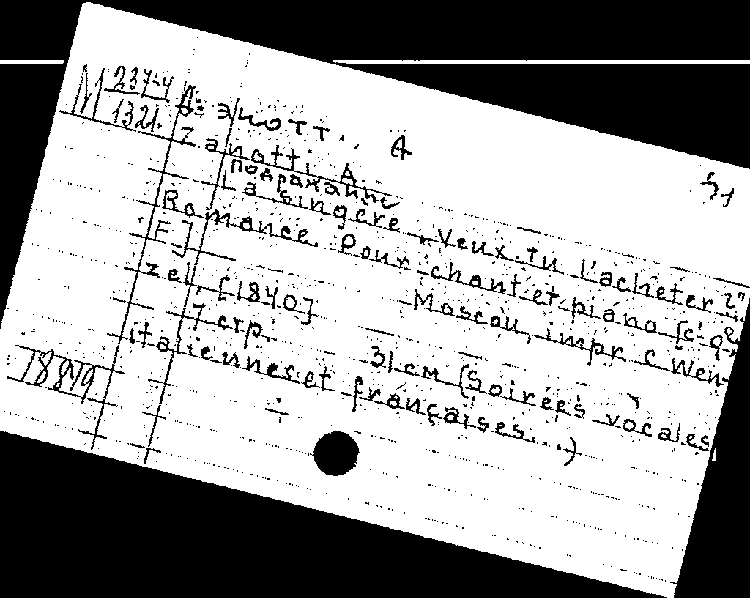 М 237-4
1321.
Дзанотти. А
51
Zanotti A.
подражание
La singère „Veux-tu l'acheter?"
Romance. Pour chant et piano [c. q
F]
Moscou, impr C Wen-
zel, [1840]
7 стр. 31 см (Soirées vocales
italiennes et françaises...)
÷
18849